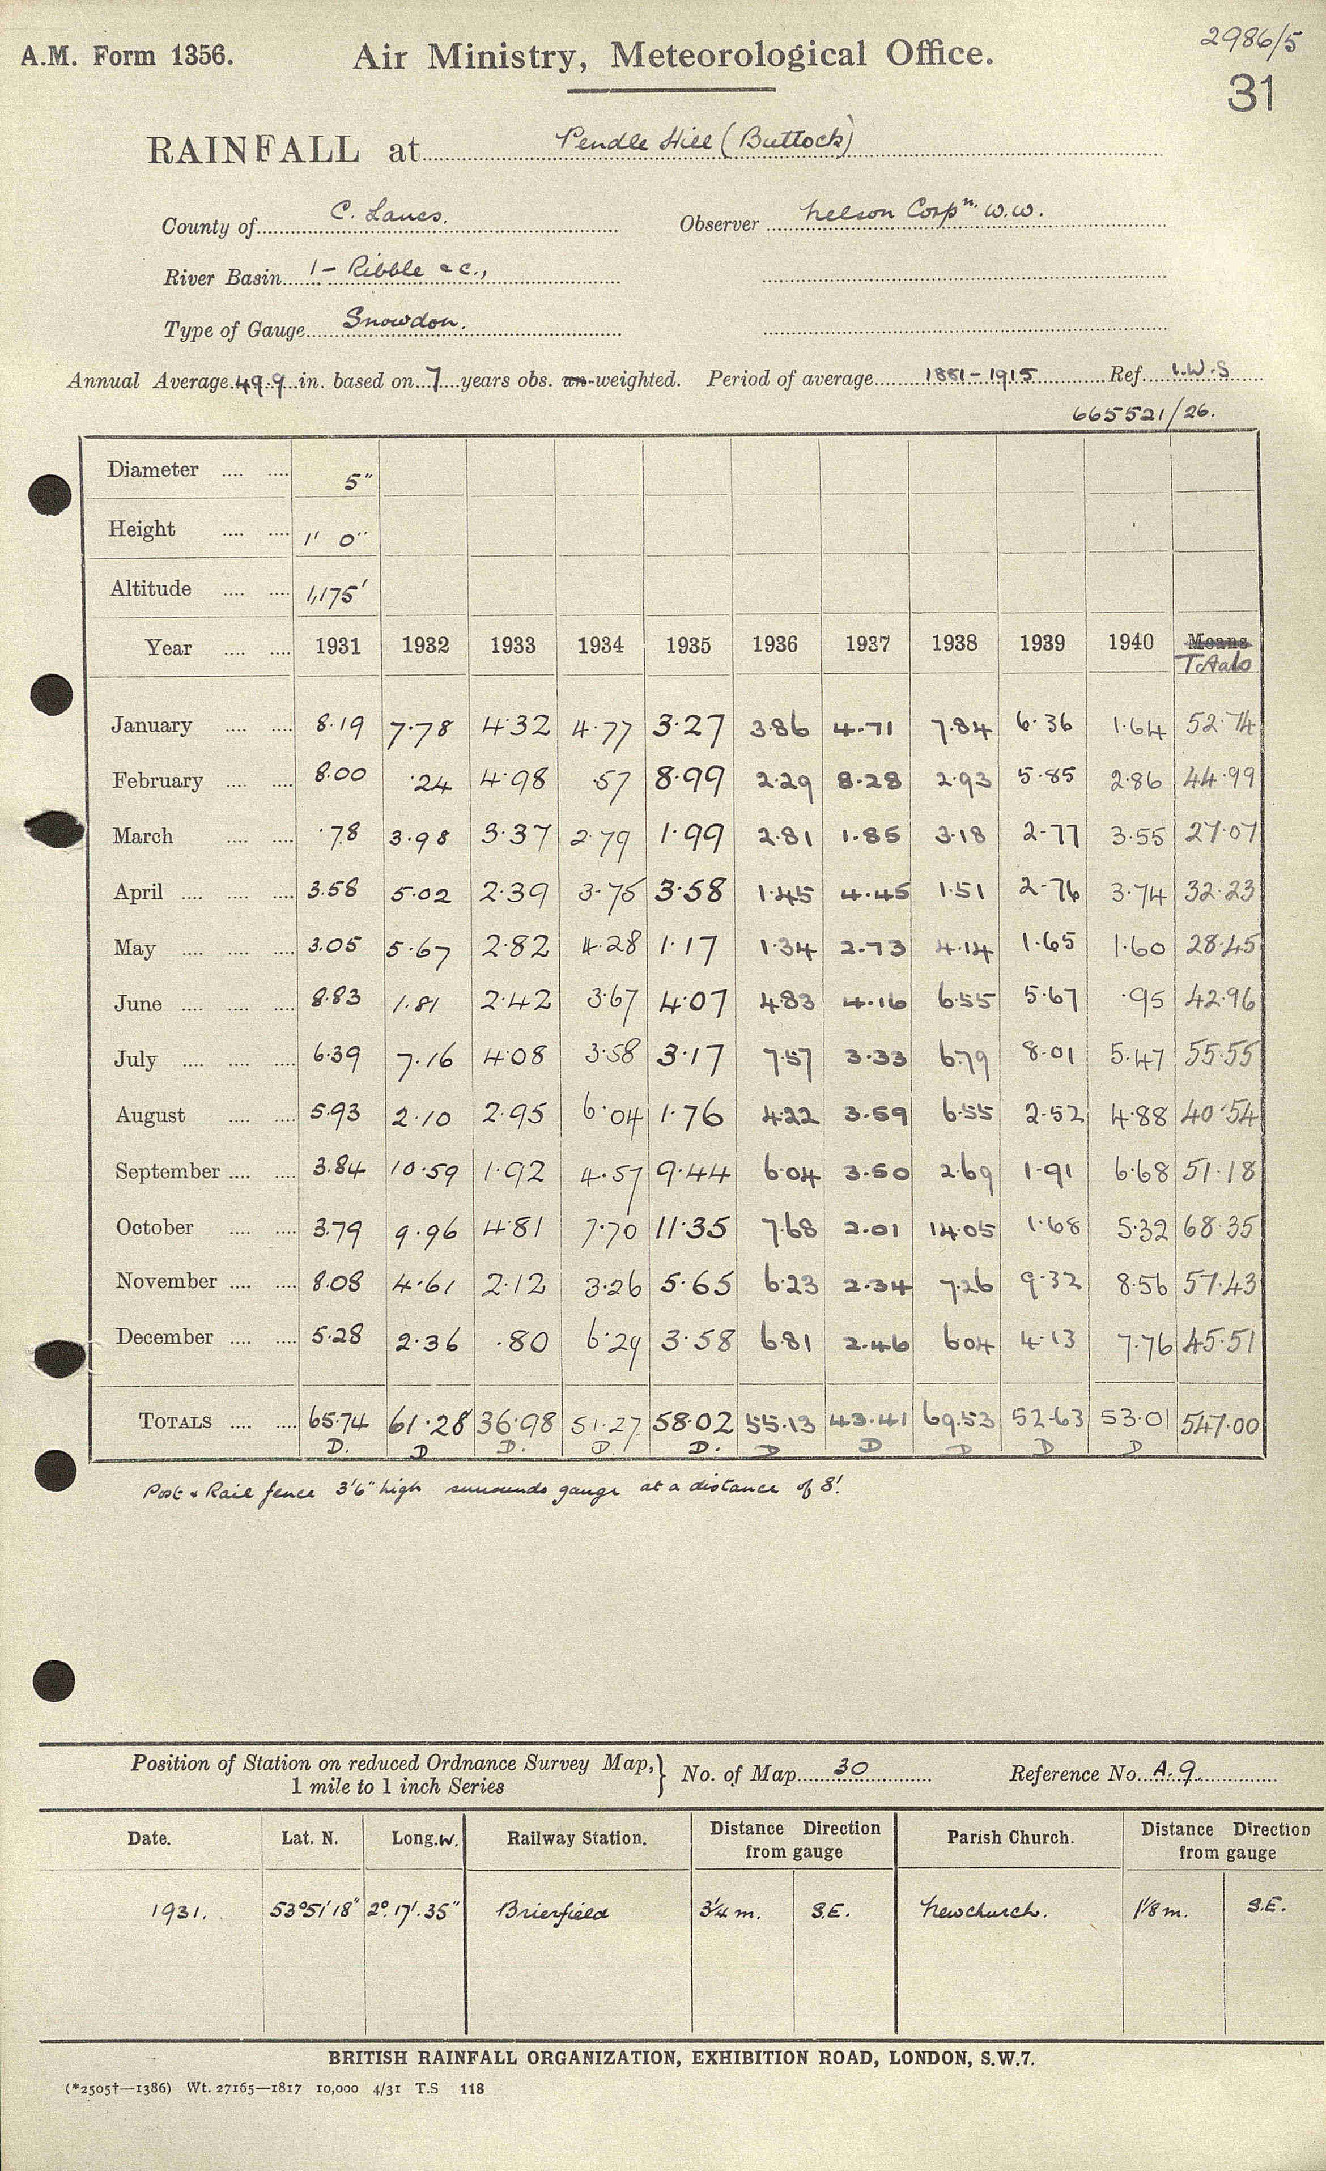 A.M. Form 1356.
Air Ministry, Meteorological Office.
2986/5
31
RAINFALL at Pendle Hill (Buttock)
County of C. Lancs. Observer Nelson Corpn. W.W.
River Basin 1 - Ribble &c.,
Type of Gauge Snowdon.
Annual Average 49.9 in. based on 7 years obs. un-weighted. Period of average 1881-1915 Ref. I.W.S
665521/26.
Diameter .... .... 5"
Height .... .... 1' 0"
Altitude .... .... 1,175'
Year .... .... 1931 1932 1933 1934 1935 1936 1937 1938 1939 1940 Means Totals
January .... .... 8.19 7.78 4.32 4.77 3.27 3.86 4.71 7.84 6.36 1.64 52.74
February .... .... 8.00 .24 4.98 .57 8.99 2.29 8.28 2.93 5.85 2.86 44.99
March .... .... .78 3.98 3.37 2.79 1.99 2.81 1.85 3.18 2.77 3.55 27.07
April .... .... .... 3.58 5.02 2.39 3.75 3.58 1.45 4.45 1.51 2.76 3.74 32.23
May .... .... .... 3.05 5.67 2.82 4.28 1.17 1.34 2.73 4.14 1.65 1.60 28.45
June .... .... .... 8.83 1.81 2.42 3.67 4.07 4.83 4.16 6.55 5.67 .95 42.96
July .... .... .... 6.39 7.16 4.08 3.58 3.17 7.57 3.33 6.79 8.01 5.47 55.55
August .... .... 5.93 2.10 2.95 6.04 1.76 4.22 3.59 6.55 2.52 4.88 40.54
September .... .... 3.84 10.59 1.92 4.57 9.44 6.04 3.50 2.69 1.91 6.68 51.18
October .... .... 3.79 9.96 4.81 7.70 11.35 7.68 2.01 14.05 1.68 5.32 68.35
November .... .... 8.08 4.61 2.12 3.26 5.65 6.23 2.34 7.26 9.32 8.56 57.43
December .... .... 5.28 2.36 .80 6.29 3.58 6.81 2.46 6.04 4.13 7.76 45.51
TOTALS .... .... 65.74 61.28 36.98 51.27 58.02 55.13 43.41 69.53 52.63 53.01 547.00
D. D D. D D. D D D D D
Post & Rail fence 3'6" high surrounds gauge at a distance of 8'.
Position of Station on reduced Ordnance Survey Map, 1 mile to 1 inch Series } No. of Map 30 Reference No. A.9.
Date. Lat. N. Long. W. Railway Station. Distance Direction from gauge Parish Church. Distance Direction from gauge
1931. 53°51'18" 2°.17'.35" Brierfield 3¼ m. S.E. Newchurch. 1⅛ m. S.E.
BRITISH RAINFALL ORGANIZATION, EXHIBITION ROAD, LONDON, S.W.7.
(*2505†—1386) Wt. 27165—1817 10,000 4/31 T.S 118